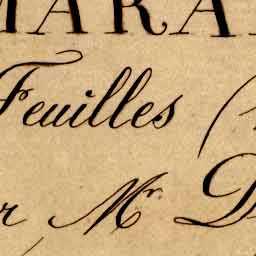 MARA
Feuilles (
r Mr. D